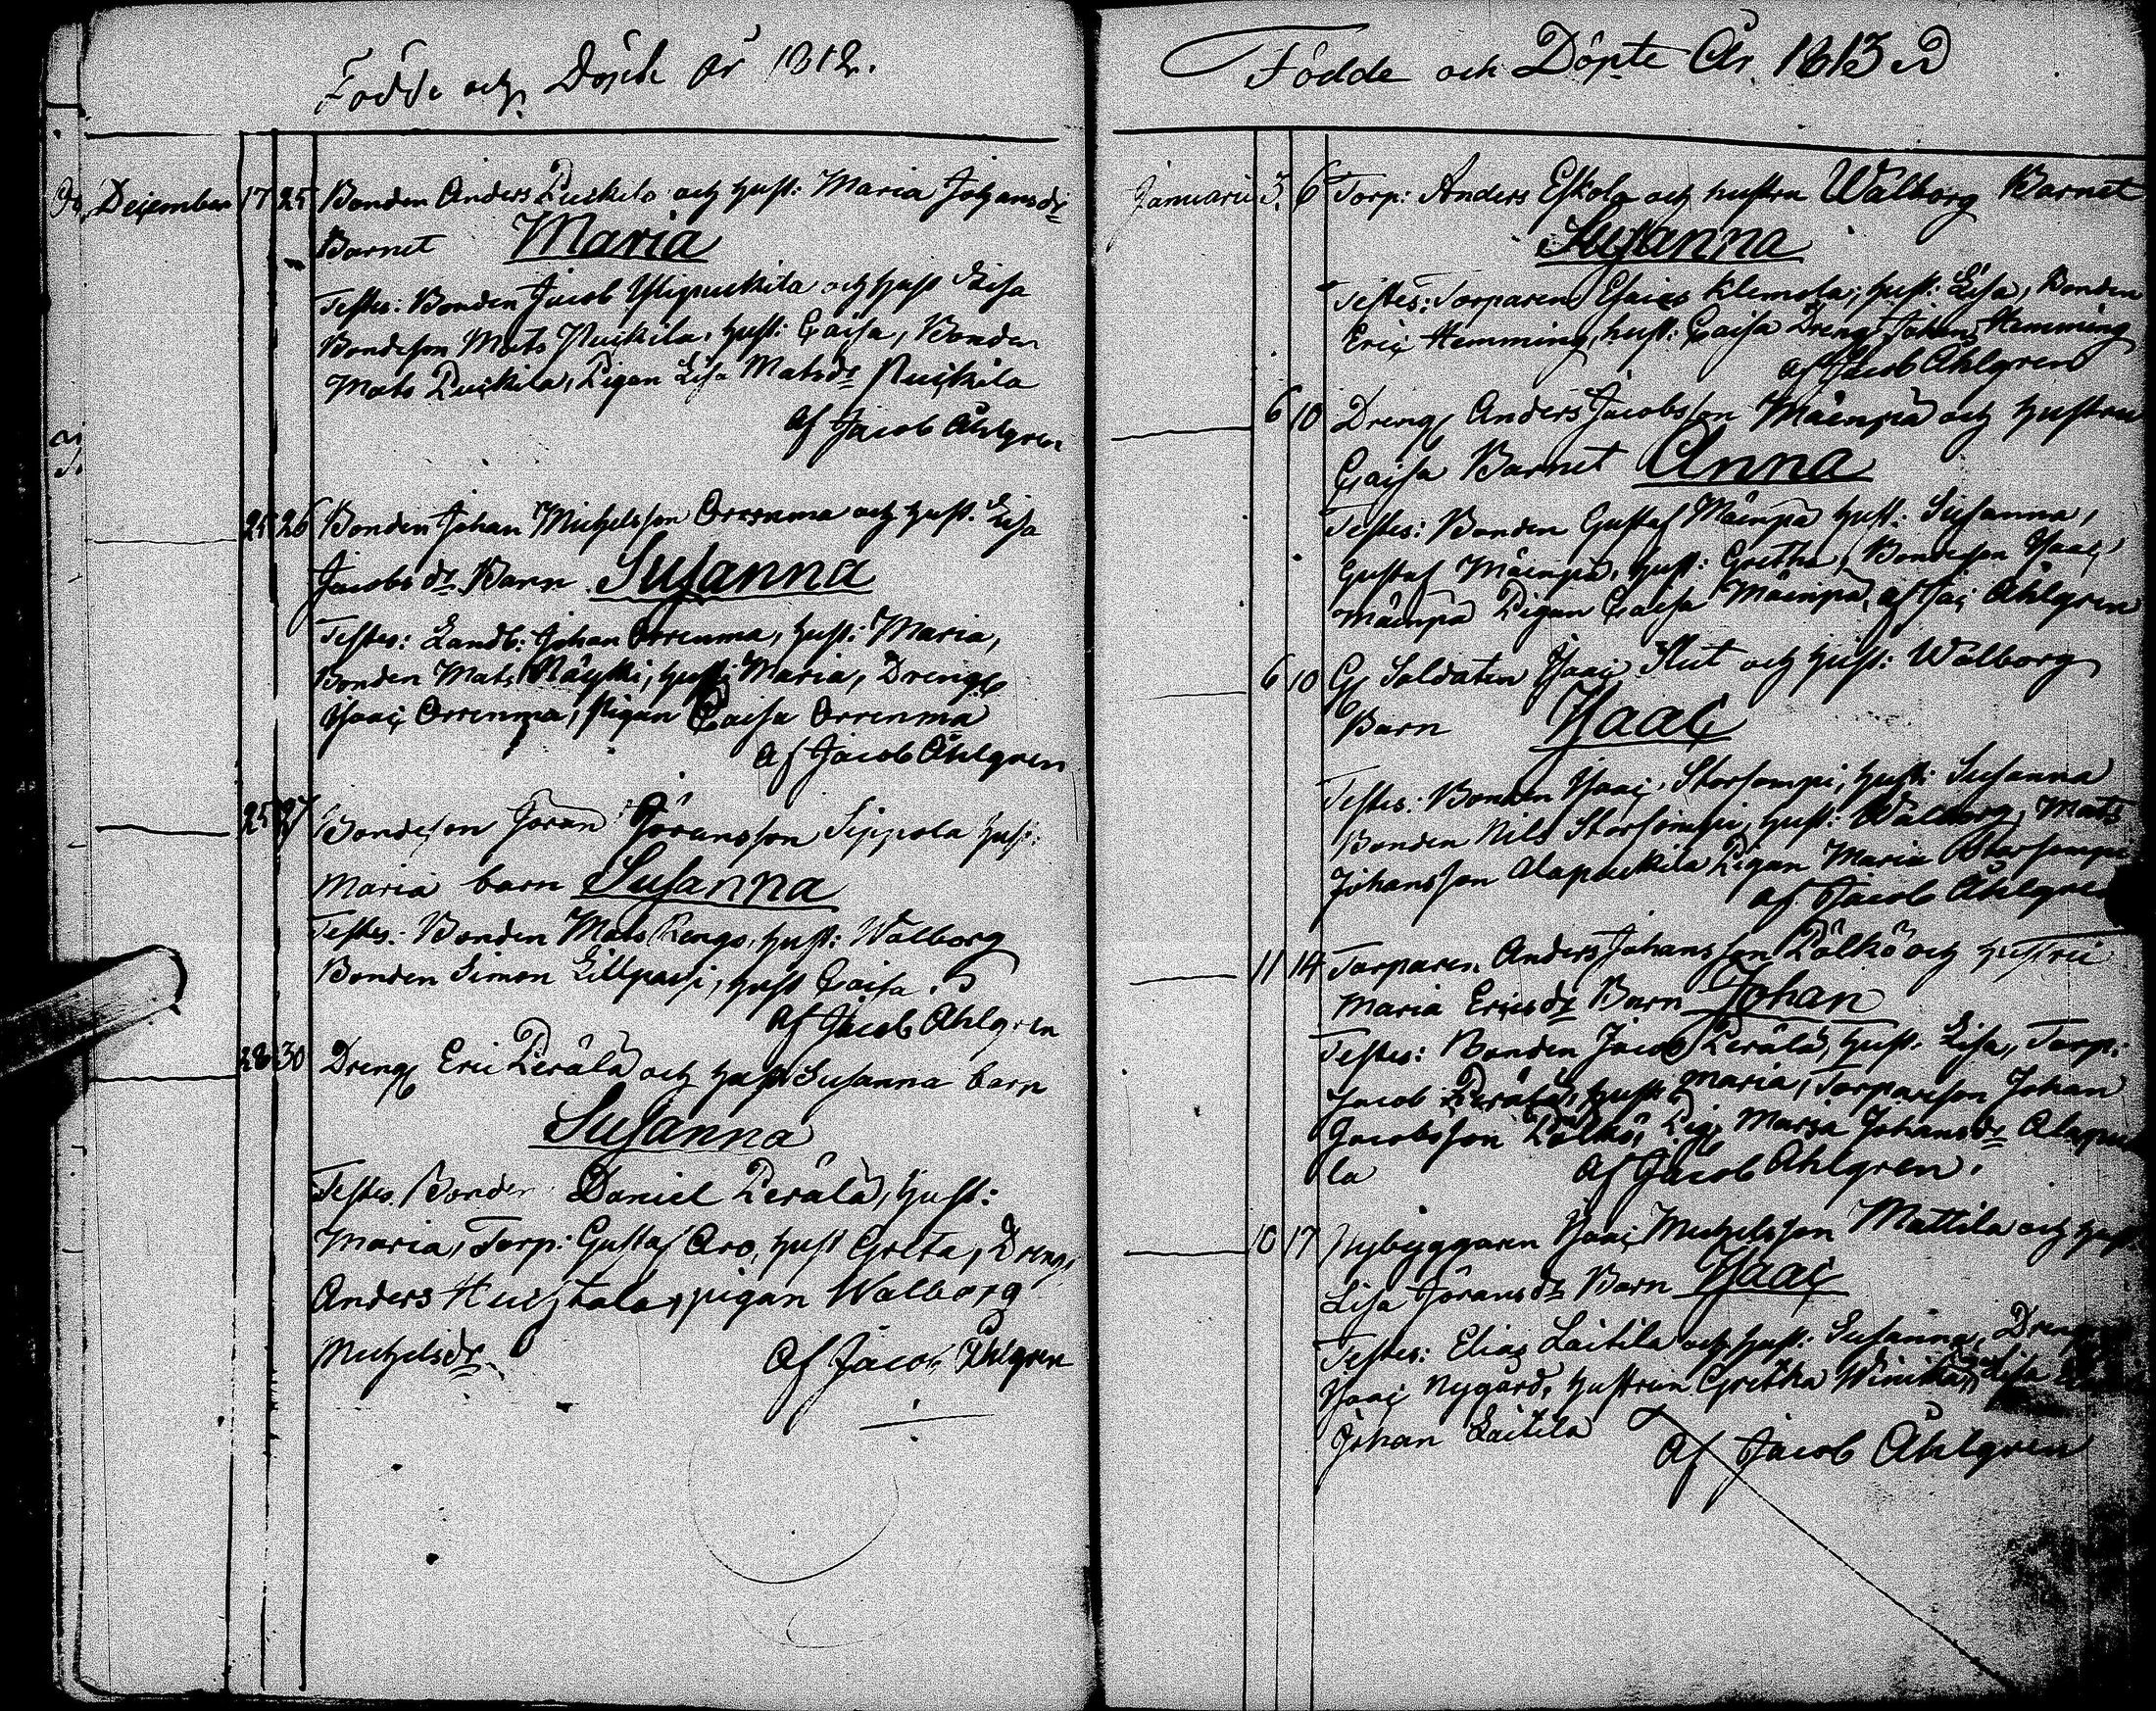 Födde och Döpte år 1812.
December 17 25 Bonden Anders Puikila och Hust: Maria Johansdr
Barnet Maria
Testes: Bonden Jacob Ylipuikila och Hust Lisa
Bondeson Mats Puikila, Hust: Caisa, Bonden
Mats Puikila, Pigan Lisa Matsdr Puikila
af Jacob Åhlgren
25 26 Bonden Johan Michelsson Orrenma och Hust. Lisa
Jacobsdr Barn Susanna
Testes: Landb: Johan Orrenma, Hust: Maria,
Bonden Mats, Hust: Maria, Dreng
Isaac Orrenma, pigan Caisa Orrenma
af Jacob Åhlgren
25 27 Bondeson Jöran Jöransson Sippola Hust:
Maria barn Susanna
Testes: Bonden Mats Rengo, Hust: Walborg
Bonden Simon Lillpassi, Hust Caisa.
af Jacob Åhlgren
28 30 Dreng Eric Perälä och Hust Susanna barn
Susanna
Testes Bonden Daniel Perälä, Hust:
Maria, Torp: Gustaf Aro, Hust Greta, Dreng
Anders Huchtala, pigan Walborg
Michelsdr Af Jacob Åhlgren
Födde och Döpte År 1813
Januarii 3. 6 Torp: Anders Eskola och hustru Walborg Barnet
Susanna
Testes: Torparen Esaias Klemola; hust: Lisa, Bonden
Eric Hemming, hust: Caisa Dreng Johan Hemming
af Jacob Åhlgren
6 10 Dreng Anders Jacobsson Mäenpä och Hustru
Caisa Barnet Anna
Testes: Bonden Gustaf Mäenpä Hust: Susanna,
Gustaf Mäenpä, Hust: Gretha, Bondeson Isaac
Mäenpä Pigan Caisa Mäenpä, af Jac Åhlgren
6 10 Soldaten Isaac Slut och Hust: Walborg
Barn Isaac
Testes: Bonden Isaac Storsompi, Hust: Susanna
Bonden Nils Storsompi, Hust: Walborg, Mats
Johansson Alapuikila Pigan Maria Storsompi
af Jacob Åhlgren
11 14 Torparen Anders Johansson Pölkö och Hustru
Maria Ericsdr Barn Johan
Testes: Bonden Jacob Perälä, Hust. Lisa, Torp:
Jacob Perälä, Hust Maria, Torpareson Johan
Jacobsson Pölkö, Pig: Maria Johansdr Alapui
la Af Jacob Åhlgren.
10 17 Nybyggaren Isaac Michelsson Mattila och Hust
Lisa Jöransdr Barn Isaac
Testes: Elias Laitila och Hust: Susanna, Dreng
Isaac Nygård, Hustrun Gretha Winika, Lisa
Johan Laitila Af Jacob Åhlgren